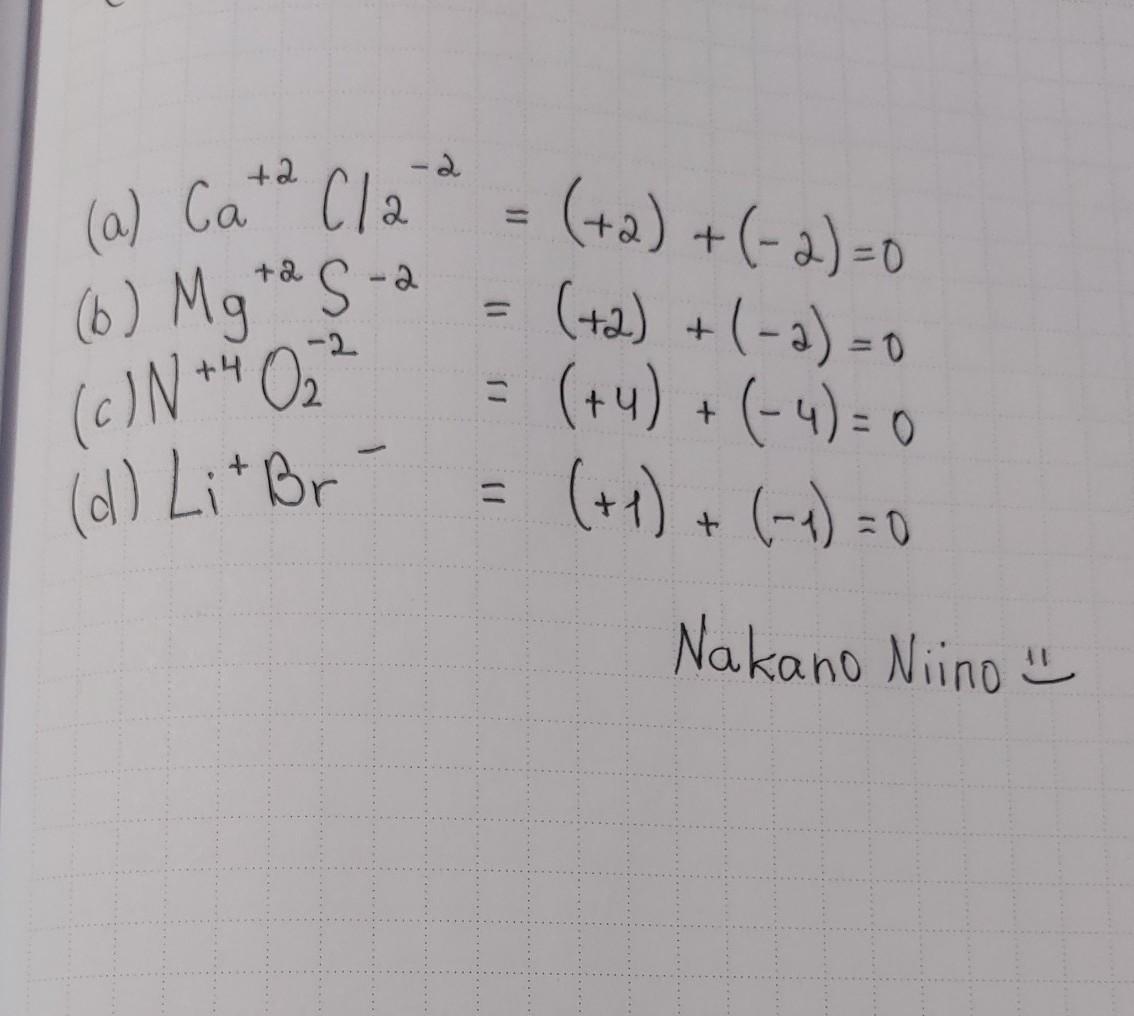 (a) Ca⁺² Cl₂⁻² = (+2) + (-2) = 0
(b) Mg⁺² S⁻² = (+2) + (-2) = 0
(c) N⁺⁴ O₂⁻² = (+4) + (-4) = 0
(d) Li⁺ Br⁻ = (+1) + (-1) = 0
Nakano Niino